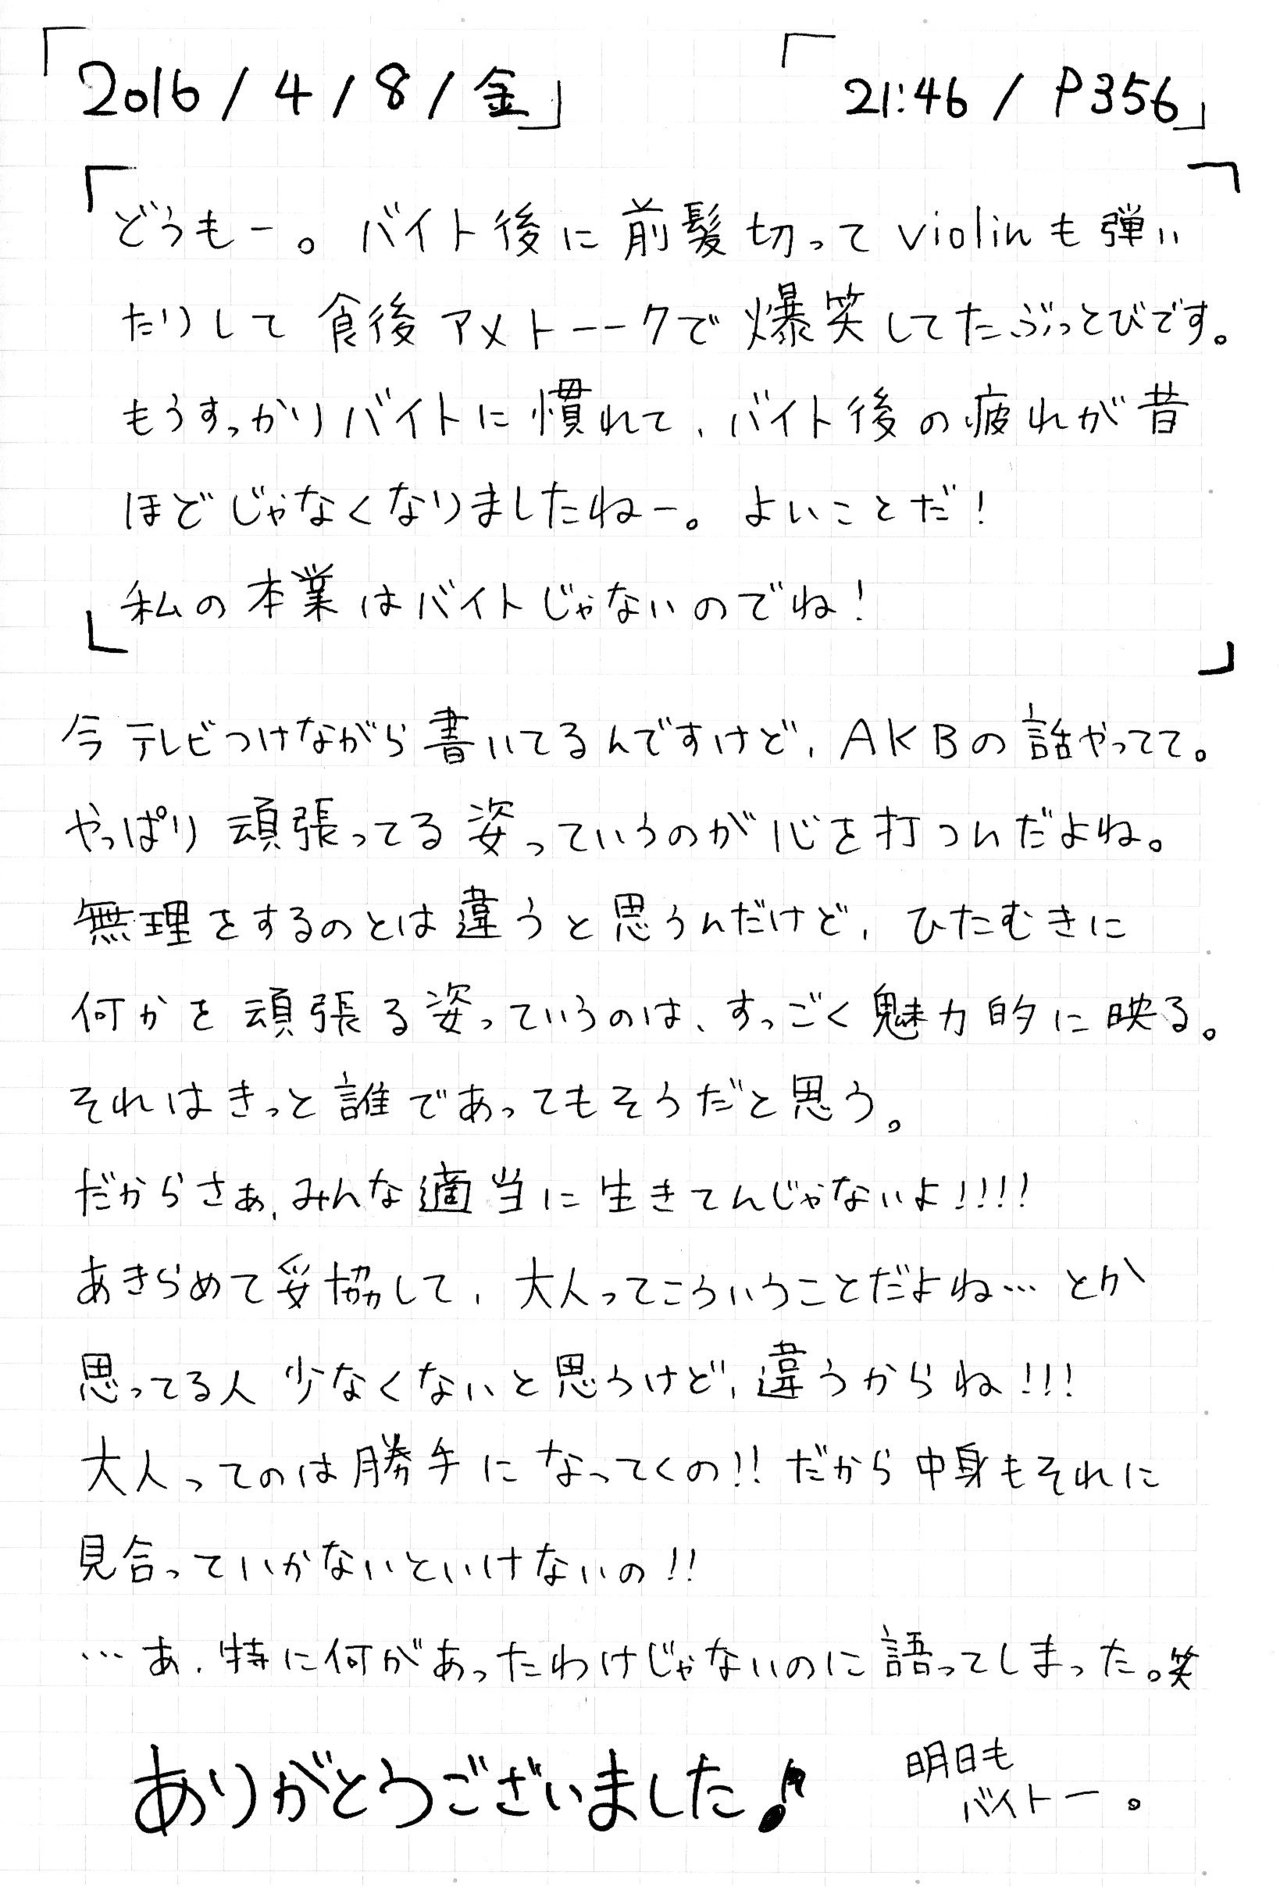 「2016/4/8/金」
「21:46/P356」
「どうもー。バイト後に前髪切ってviolinも弾い
たりして食後アメトーークで爆笑してたぶっとびです。
もうすっかりバイトに慣れて、バイト後の疲れが昔
ほどじゃなくなりましたねー。よいことだ!
私の本業はバイトじゃないのでね!」
今テレビつけながら書いてるんですけど、AKBの話やってて。
やっぱり頑張ってる姿っていうのが心を打つんだよね。
無理をするのとは違うと思うんだけど、ひたむきに
何かを頑張る姿っていうのは、すっごく魅力的に映る。
それはきっと誰であってもそうだと思う。
だからさぁ、みんな適当に生きてんじゃないよ!!!!
あきらめて妥協して、大人ってこういうことだよね…とか
思ってる人少なくないと思うけど、違うからね!!!
大人ってのは勝手になってくの!!だから中身もそれに
見合っていかないといけないの!!
…あ、特に何があったわけじゃないのに語ってしまった。笑
ありがとうございました♪
明日も
バイトー。